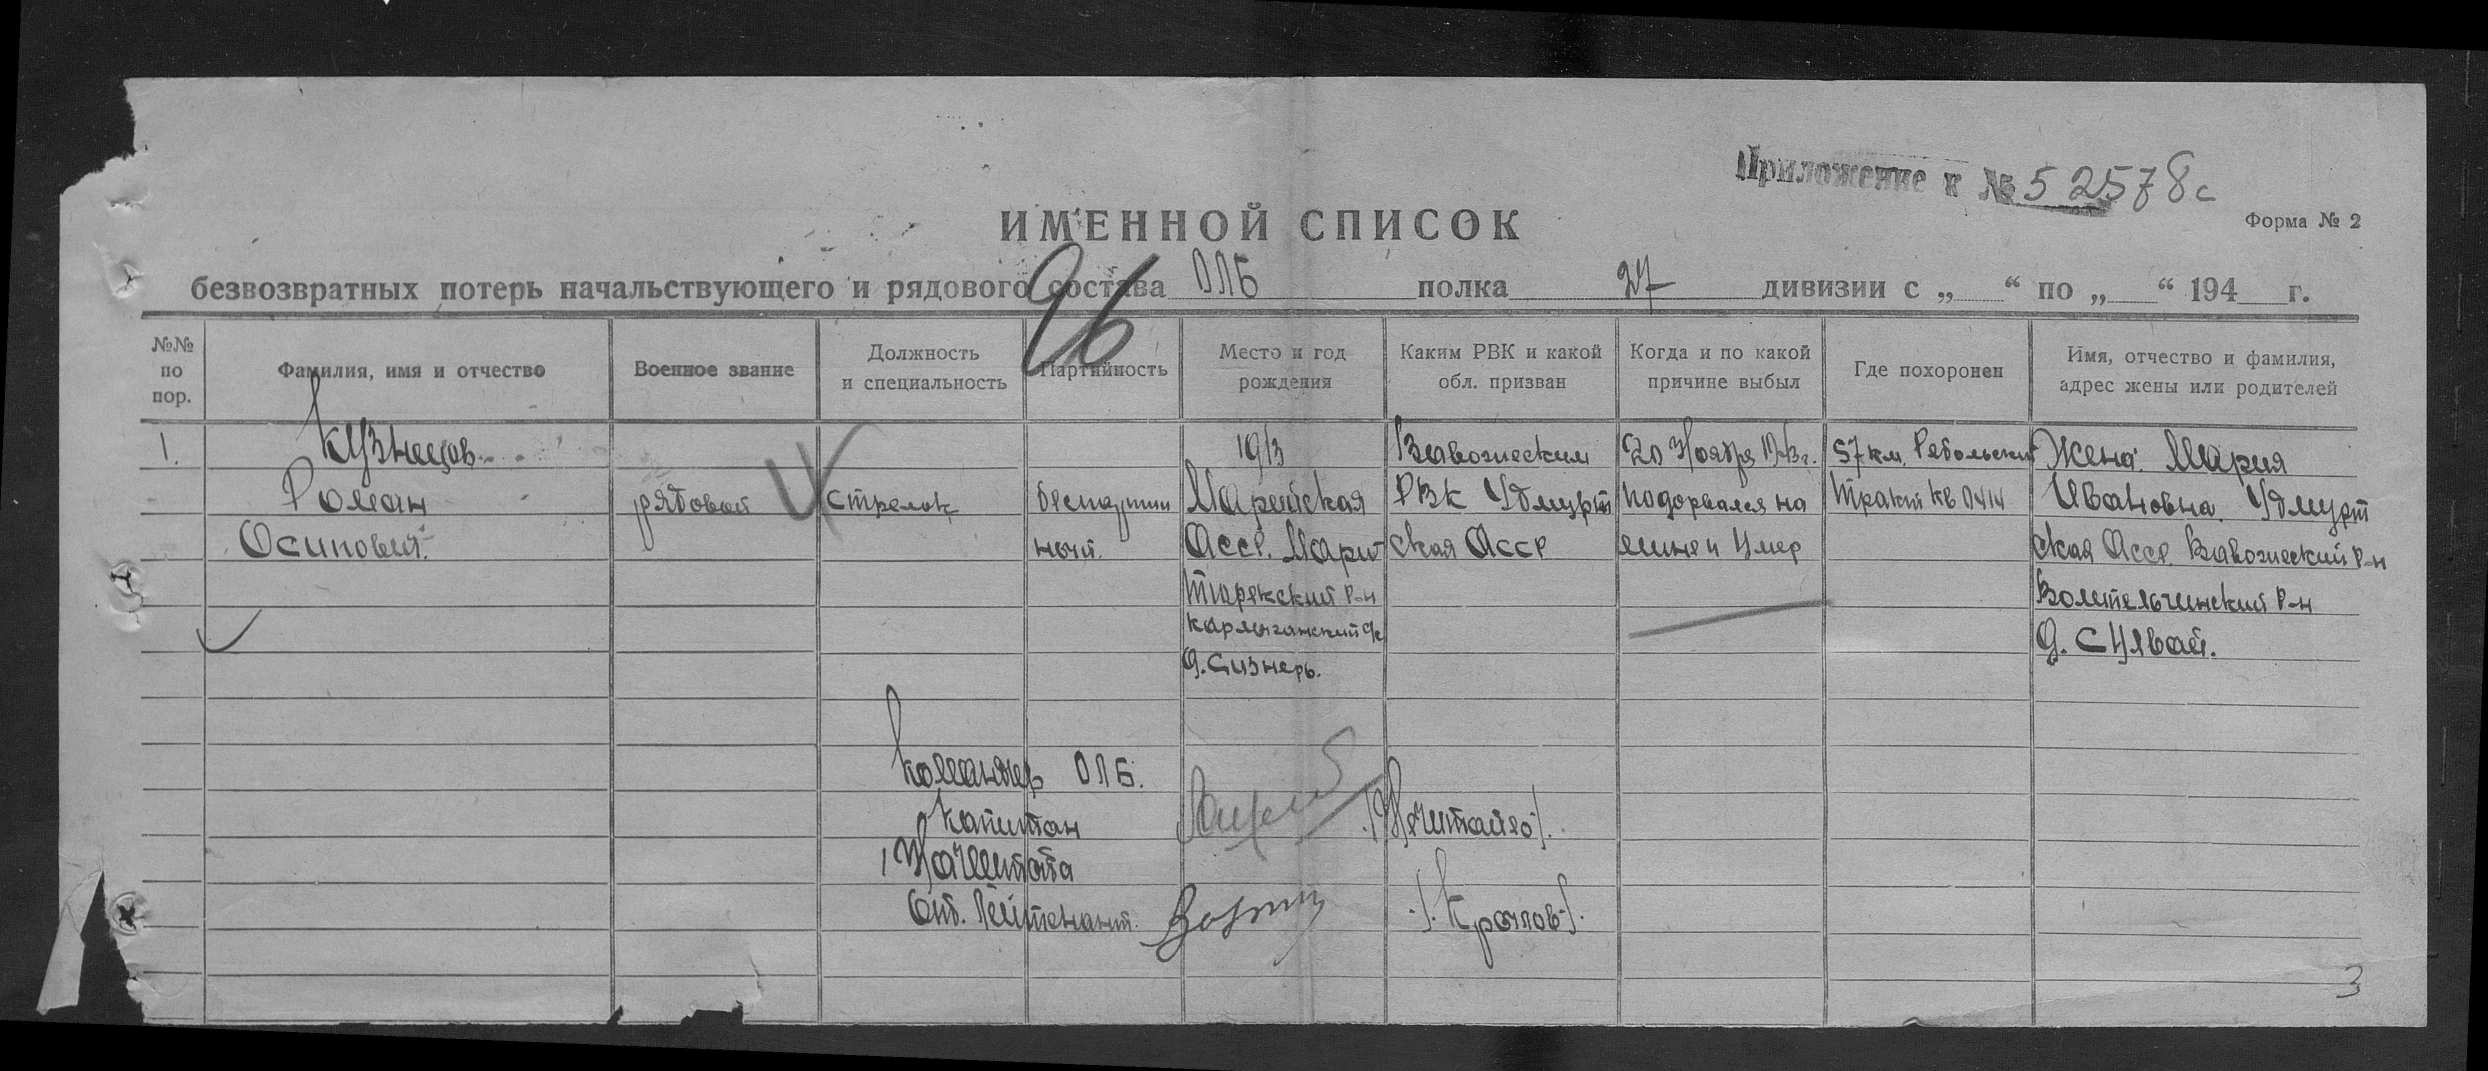 Приложение к № 52578с
ИМЕННОЙ СПИСОК
Форма № 2
безвозвратных потерь начальствующего и рядового состава ОЛБ полка 27 дивизии с „ “ по „ “ 194 г.
26
№№ по пор.
Фамилия, имя и отчество
Военное звание
Должность и специальность
Партийность
Место и год рождения
Каким РВК и какой обл. призван
Когда и по какой причине выбыл
Где похоронен
Имя, отчество и фамилия, адрес жены или родителей
1.
Кузнецов
Роман
Осипович.
рядовой
стрелок
беспартий
ный.
1913
Марийская
Асср. Мари
Турекский р-н
Карлыганский с/с
д. Сизнерь.
Вавожским
РВК Удмурт
ская Асср
20 Ноября 1943г.
подорвался на
мине и умер
57 км. Ребольский
тракт кв 0414
Жена. Мария
Ивановна. Удмурт
ская Асср. Вавожский р-н
Волипельгинский р-н
д. Сулвай.
Командир ОЛБ.
Капитан
Нач штаба
Ст. Лейтенант.
/Крапов/.
3